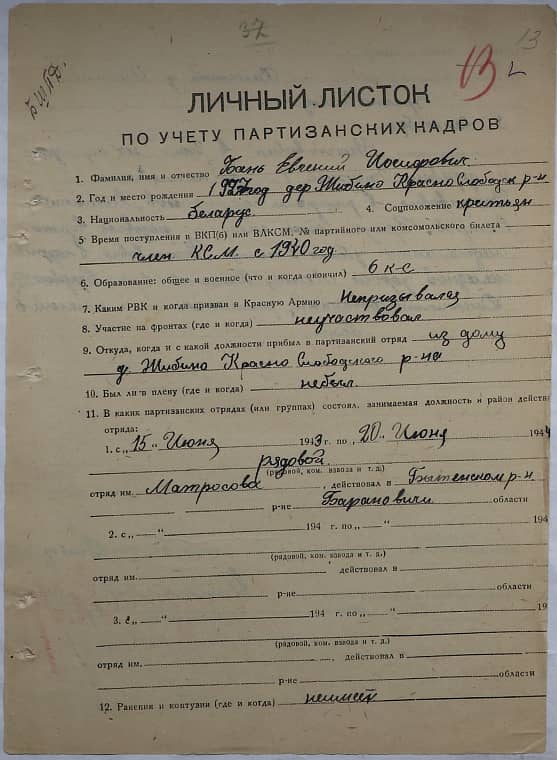 37
13
Б.Ш.П.Д.
13
ЛИЧНЫЙ ЛИСТОК
ПО УЧЕТУ ПАРТИЗАНСКИХ КАДРОВ
1. Фамилия, имя и отчество Бань Евгений Иосифович
2. Год и место рождения 1927 год дер. Жибино Краснослободск р-н
3. Национальность Беларус 4. Соцположение крестьян
5 Время поступления в ВКП(б) или ВЛКСМ, № партийного или комсомольского билета
член К.С.М. с 1940 год
6. Образование: общее и военное (что и когда окончил) 6 к-с
7. Каким РВК и когда призван в Красную Армию Непризывался
8. Участие на фронтах (где и когда) неучаствовал
9. Откуда, когда и с какой должности прибыл в партизанский отряд из дому
д. Жибино Красно Слободского р-на
10. Был ли в плену (где и когда) небыл.
11. В каких партизанских отрядах (или группах) состоял, занимаемая должность и район действ
отряда:
1. с „15„ Июня 1943 г. по „20„ Июня 1944
рядовой.
(рядовой, ком. взвода и т. д.)
отряд им. Матросова, действовал в Бытенском р-н
р-не Барановичи области
2. с „—“ 194 г. по „—“ 194
(рядовой, ком. взвода и т. д.)
отряд им. действовал в
р-не области
3. с „—“ 194 г. по „—“ 194
(рядовой, ком. взвода и т. д.)
отряд им. , действовал в
р-не области
12. Ранения и контузии (где и когда) неимеет